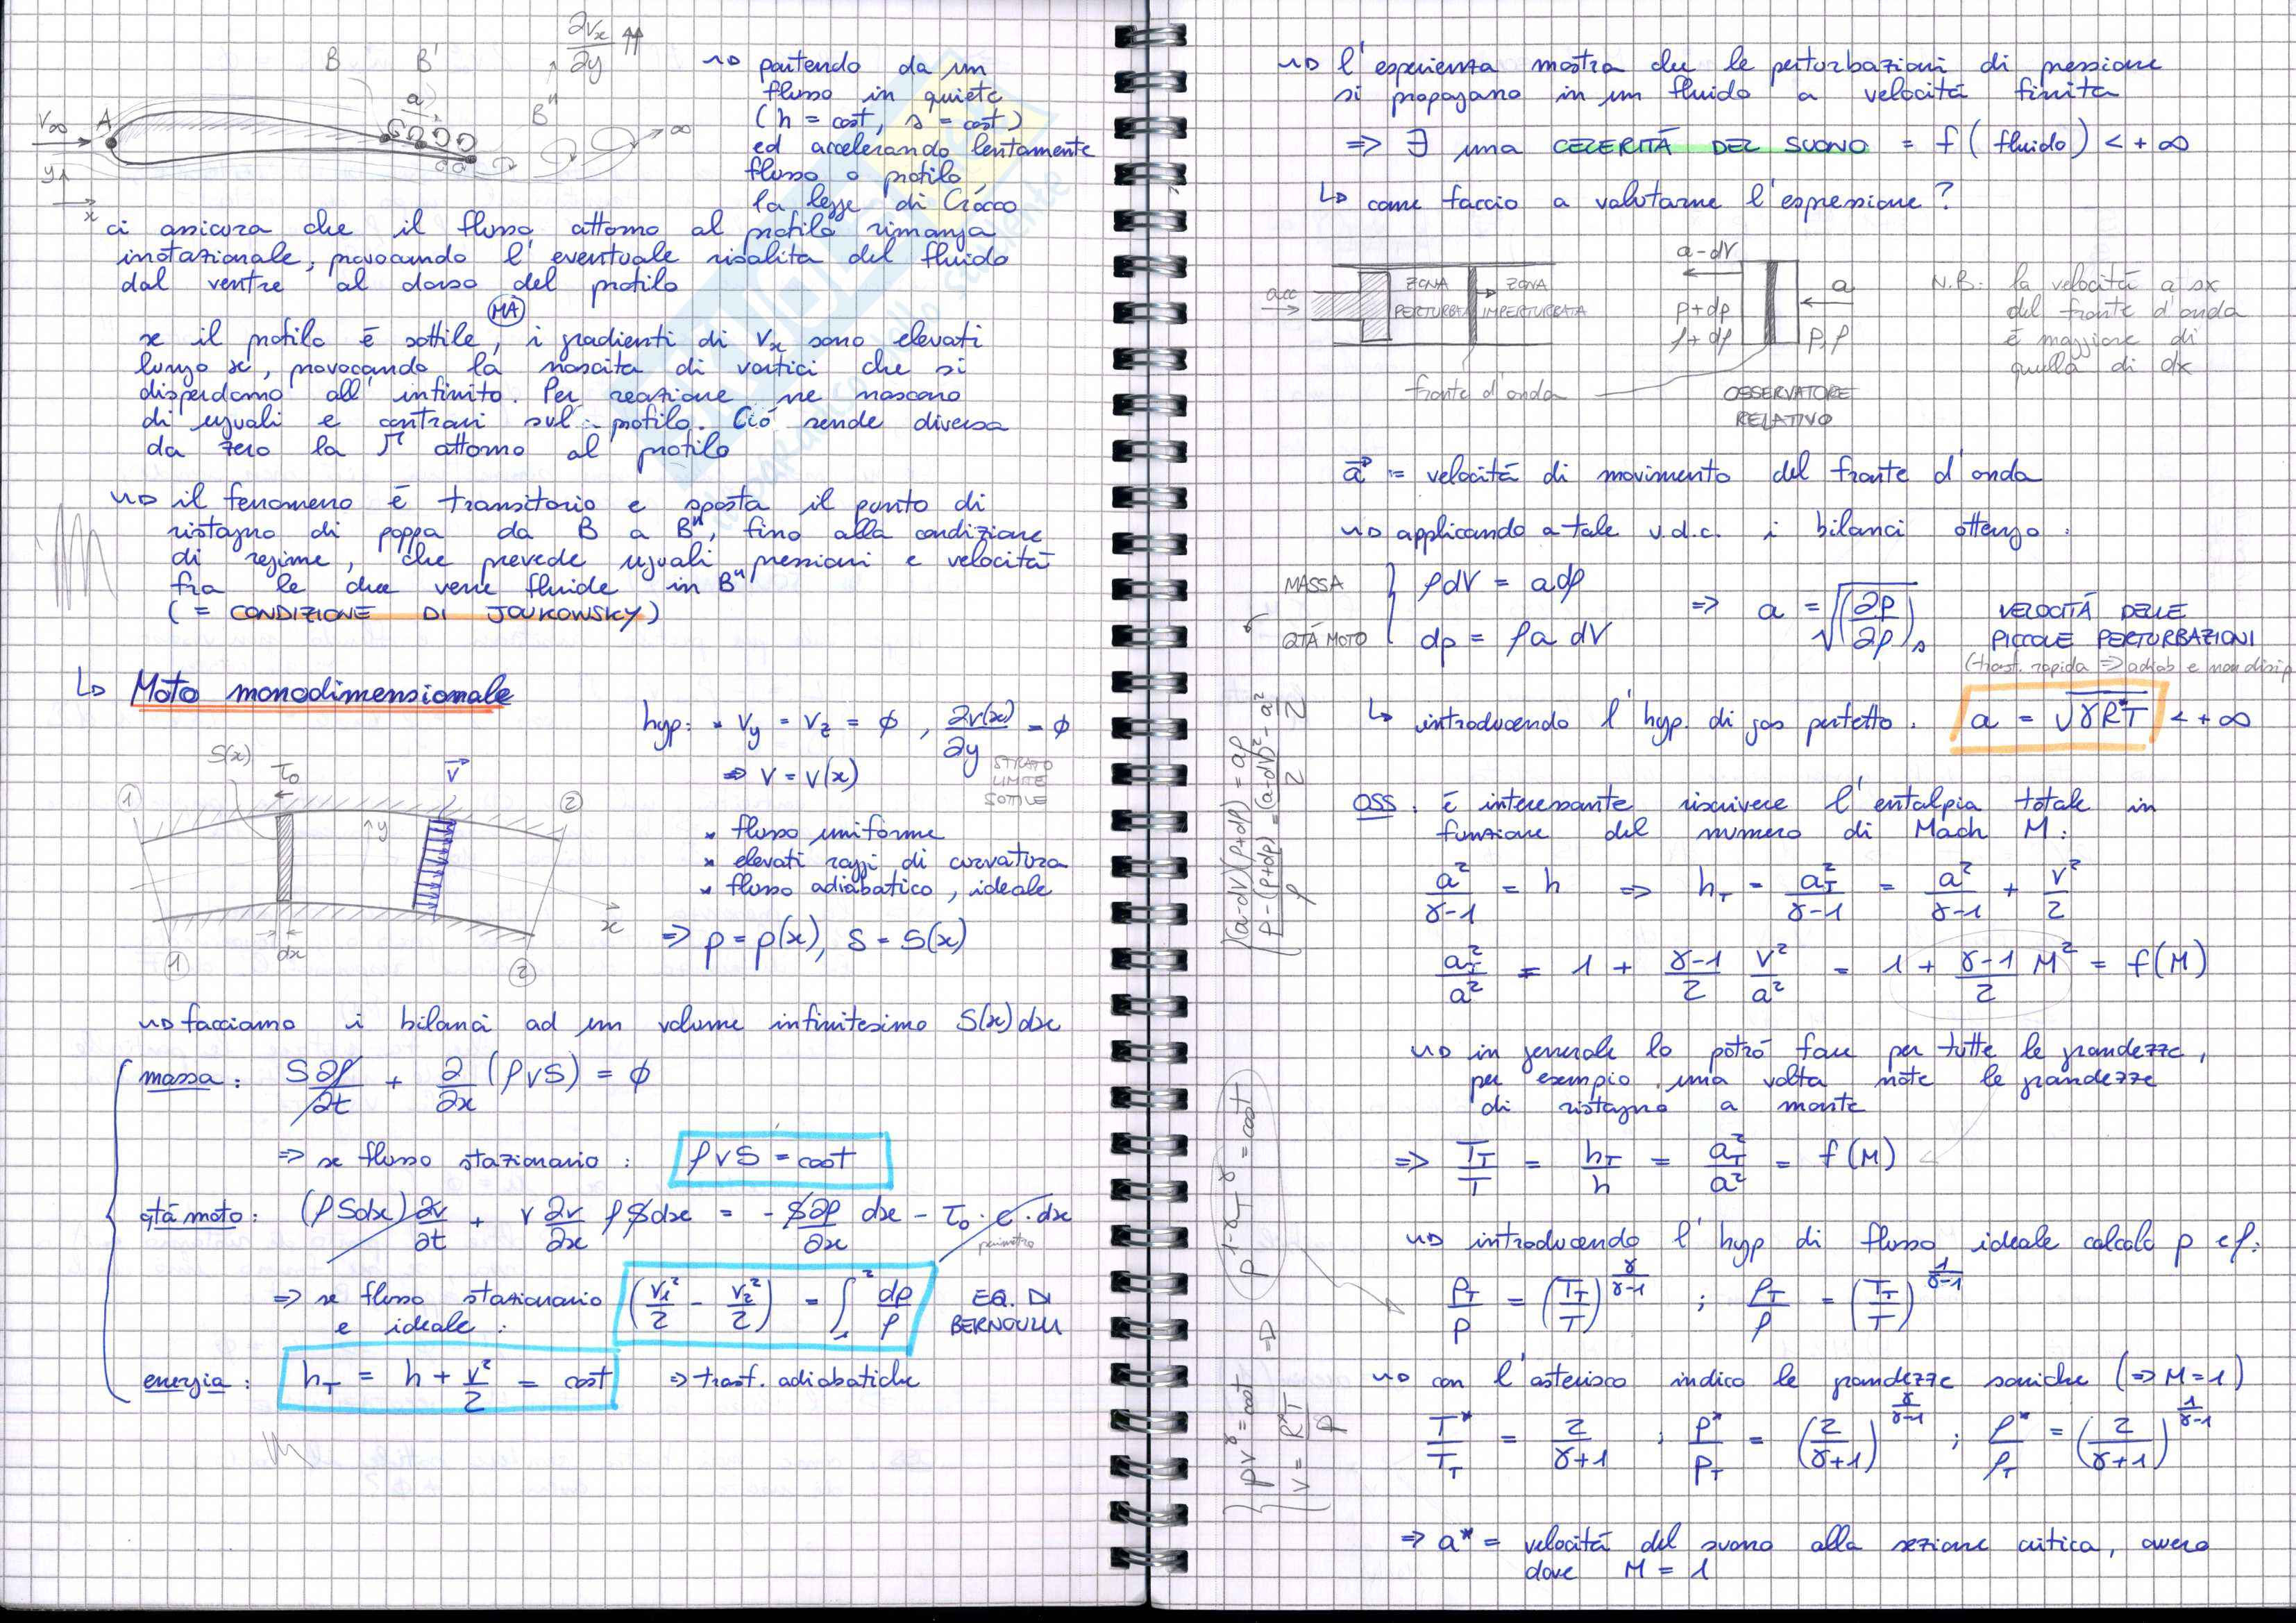 ∂Vx/∂y ↑↑
B B'
a
B"
V∞ A
∞
y
x
~> partendo da un
flusso in quiete
(h = cost, s = cost)
ed accelerando lentamente
flusso o profilo,
la legge di Crocco
ci assicura che il flusso attorno al profilo rimanga
irrotazionale, provocando l'eventuale risalita del fluido
dal ventre al dorso del profilo
MA
se il profilo è sottile, i gradienti di Vx sono elevati
lungo x, provocando la nascita di vortici che si
disperdono all'infinito. Per reazione ne nascono
di uguali e contrari sul profilo. Ciò rende diversa
da zero la Γ attorno al profilo
~> il fenomeno è transitorio e sposta il punto di
ristagno di poppa da B a B", fino alla condizione
di regime, che prevede uguali pressioni e velocità
fra le due vene fluide in B"
(= CONDIZIONE DI JOUKOWSKY)
↳ Moto monodimensionale
hyp: • Vy = Vz = ϕ , ∂v(x)/∂y = ϕ
=> V = V(x)
STRATO
LIMITE
SOTTILE
• flusso uniforme
• elevati raggi di curvatura
• flusso adiabatico, ideale
=> p = p(x), S = S(x)
S(x) τ0 v
1 2
y
x
dx
1 2
~> facciamo i bilanci ad un volume infinitesimo S(x) dx
massa: S ∂ρ/∂t + ∂/∂x (ρvS) = ϕ
=> se flusso stazionario: ρvS = cost
qtà moto: (ρSdx) ∂v/∂t + v ∂v/∂x ρSdx = - S∂p/∂x dx - τ0 · c · dx
perimetro
=> se flusso stazionario (v1²/2 - v2²/2) = ∫₁² dp/ρ EQ. DI
e ideale: BERNOULLI
energia: hT = h + v²/2 = cost => trasf. adiabatiche
~> l'esperienza mostra che le perturbazioni di pressione
si propagano in un fluido a velocità finita
=> ∃ una CELERITÀ DEL SUONO = f(fluido) < +∞
↳ come faccio a valutarne l'espressione?
acc
ZONA ZONA
PERTURBATA IMPERTURBATA
fronte d'onda
a-dV
p+dp
ρ+dρ
a
p,ρ
OSSERVATORE
RELATIVO
N.B.: la velocità a sx
del fronte d'onda
è maggiore di
quella di dx
a := velocità di movimento del fronte d'onda
~> applicando a tale v.d.c. i bilanci ottengo:
MASSA ρdV = adρ
QTÀ MOTO dp = ρa dV
=> a = √(∂p/∂ρ)s
VELOCITÀ DELLE
PICCOLE PERTURBAZIONI
(trasf. rapida => adiab e non dissip
↳ introducendo l'hyp. di gas perfetto: a = √γR*T < +∞
(a-dV)(ρ+dρ) = aρ
p-(p+dp)/ρ = (a-dV)²/2 - a²/2
OSS: è interessante riscrivere l'entalpia totale in
funzione del numero di Mach M:
a²/γ-1 = h => hT = aT²/γ-1 = a²/γ-1 + v²/2
aT²/a² = 1 + γ-1/2 v²/a² = 1 + γ-1/2 M² = f(M)
~> in generale lo potrò fare per tutte le grandezze,
per esempio una volta note le grandezze
di ristagno a monte
=> TT/T = hT/h = aT²/a² = f(M)
~> introducendo l'hyp di flusso ideale calcolo p e ρ:
pT/p = (TT/T)^γ/γ-1 ; ρT/ρ = (TT/T)^1/γ-1
pv^γ = cost
v = R*T/p
=> p^1-γ T^γ = cost
~> con l'asterisco indico le grandezze soniche (=> M=1)
T*/TT = 2/γ+1 ; p*/pT = (2/γ+1)^γ/γ-1 ; ρ*/ρT = (2/γ+1)^1/γ-1
=> a* = velocità del suono alla sezione critica, ovvero
dove M = 1